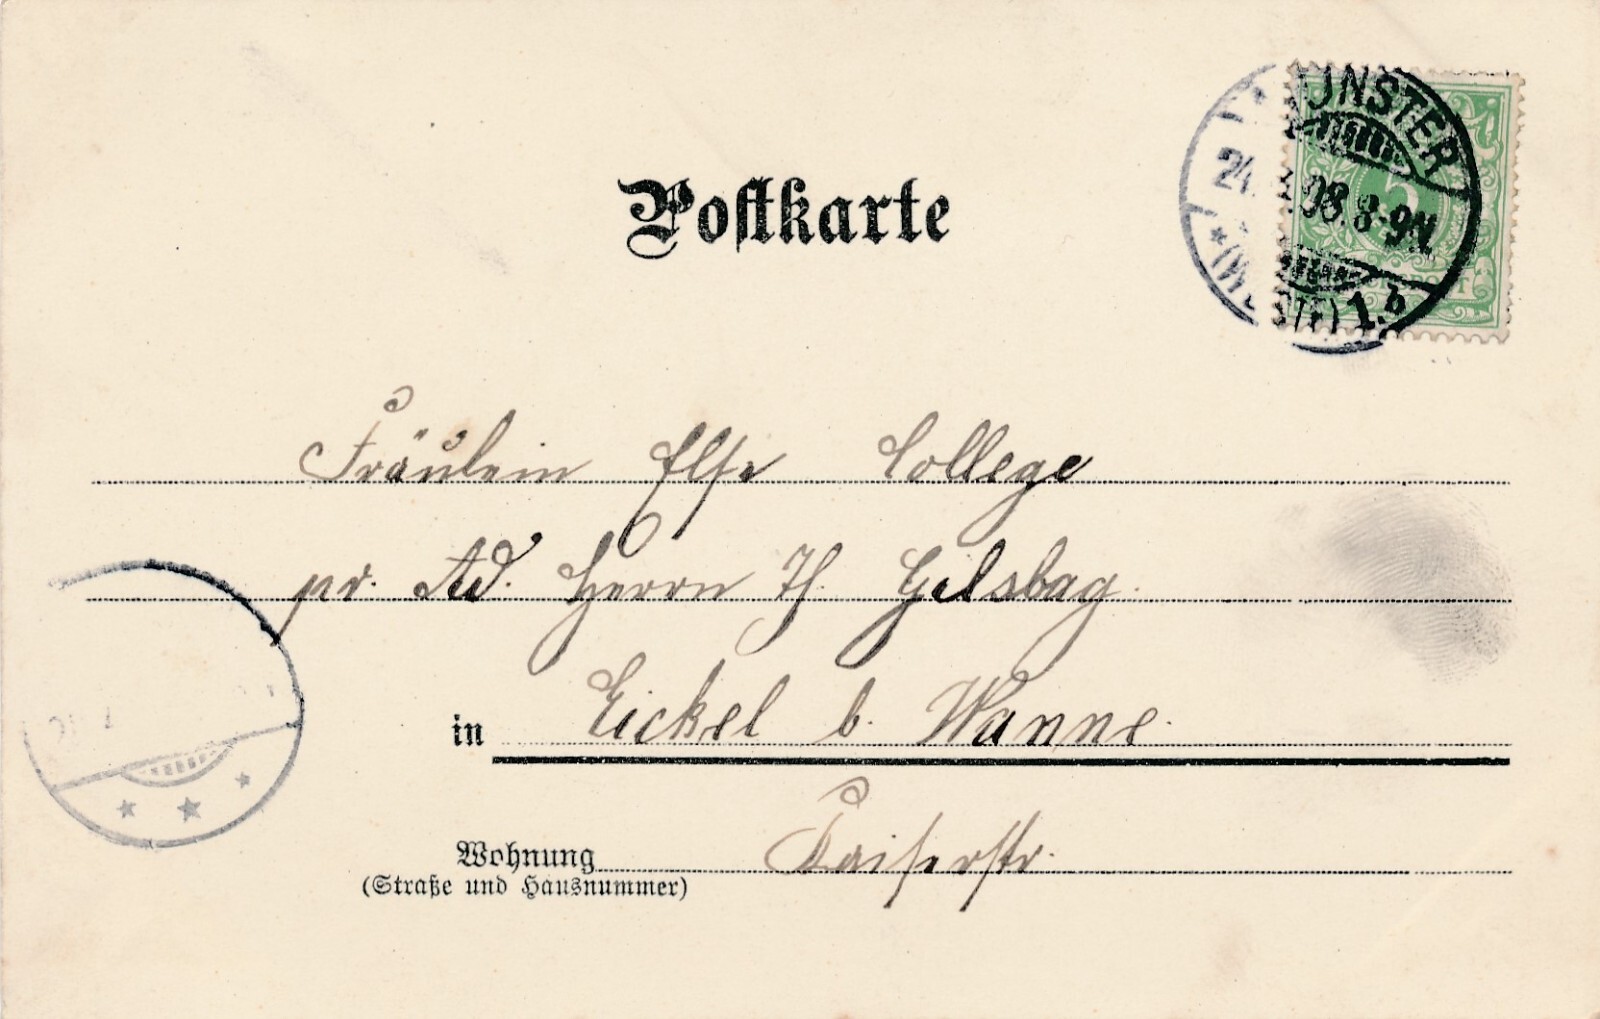 Postkarte
MÜNSTER
24. 98. 8-9N.
(W STF) 1.b
5
Fräulein Else College
pr. Ad. Herrn Th. Gilsbag.
in Eickel b. Wanne.
Wohnung Kaiserstr.
(Straße und Hausnummer)